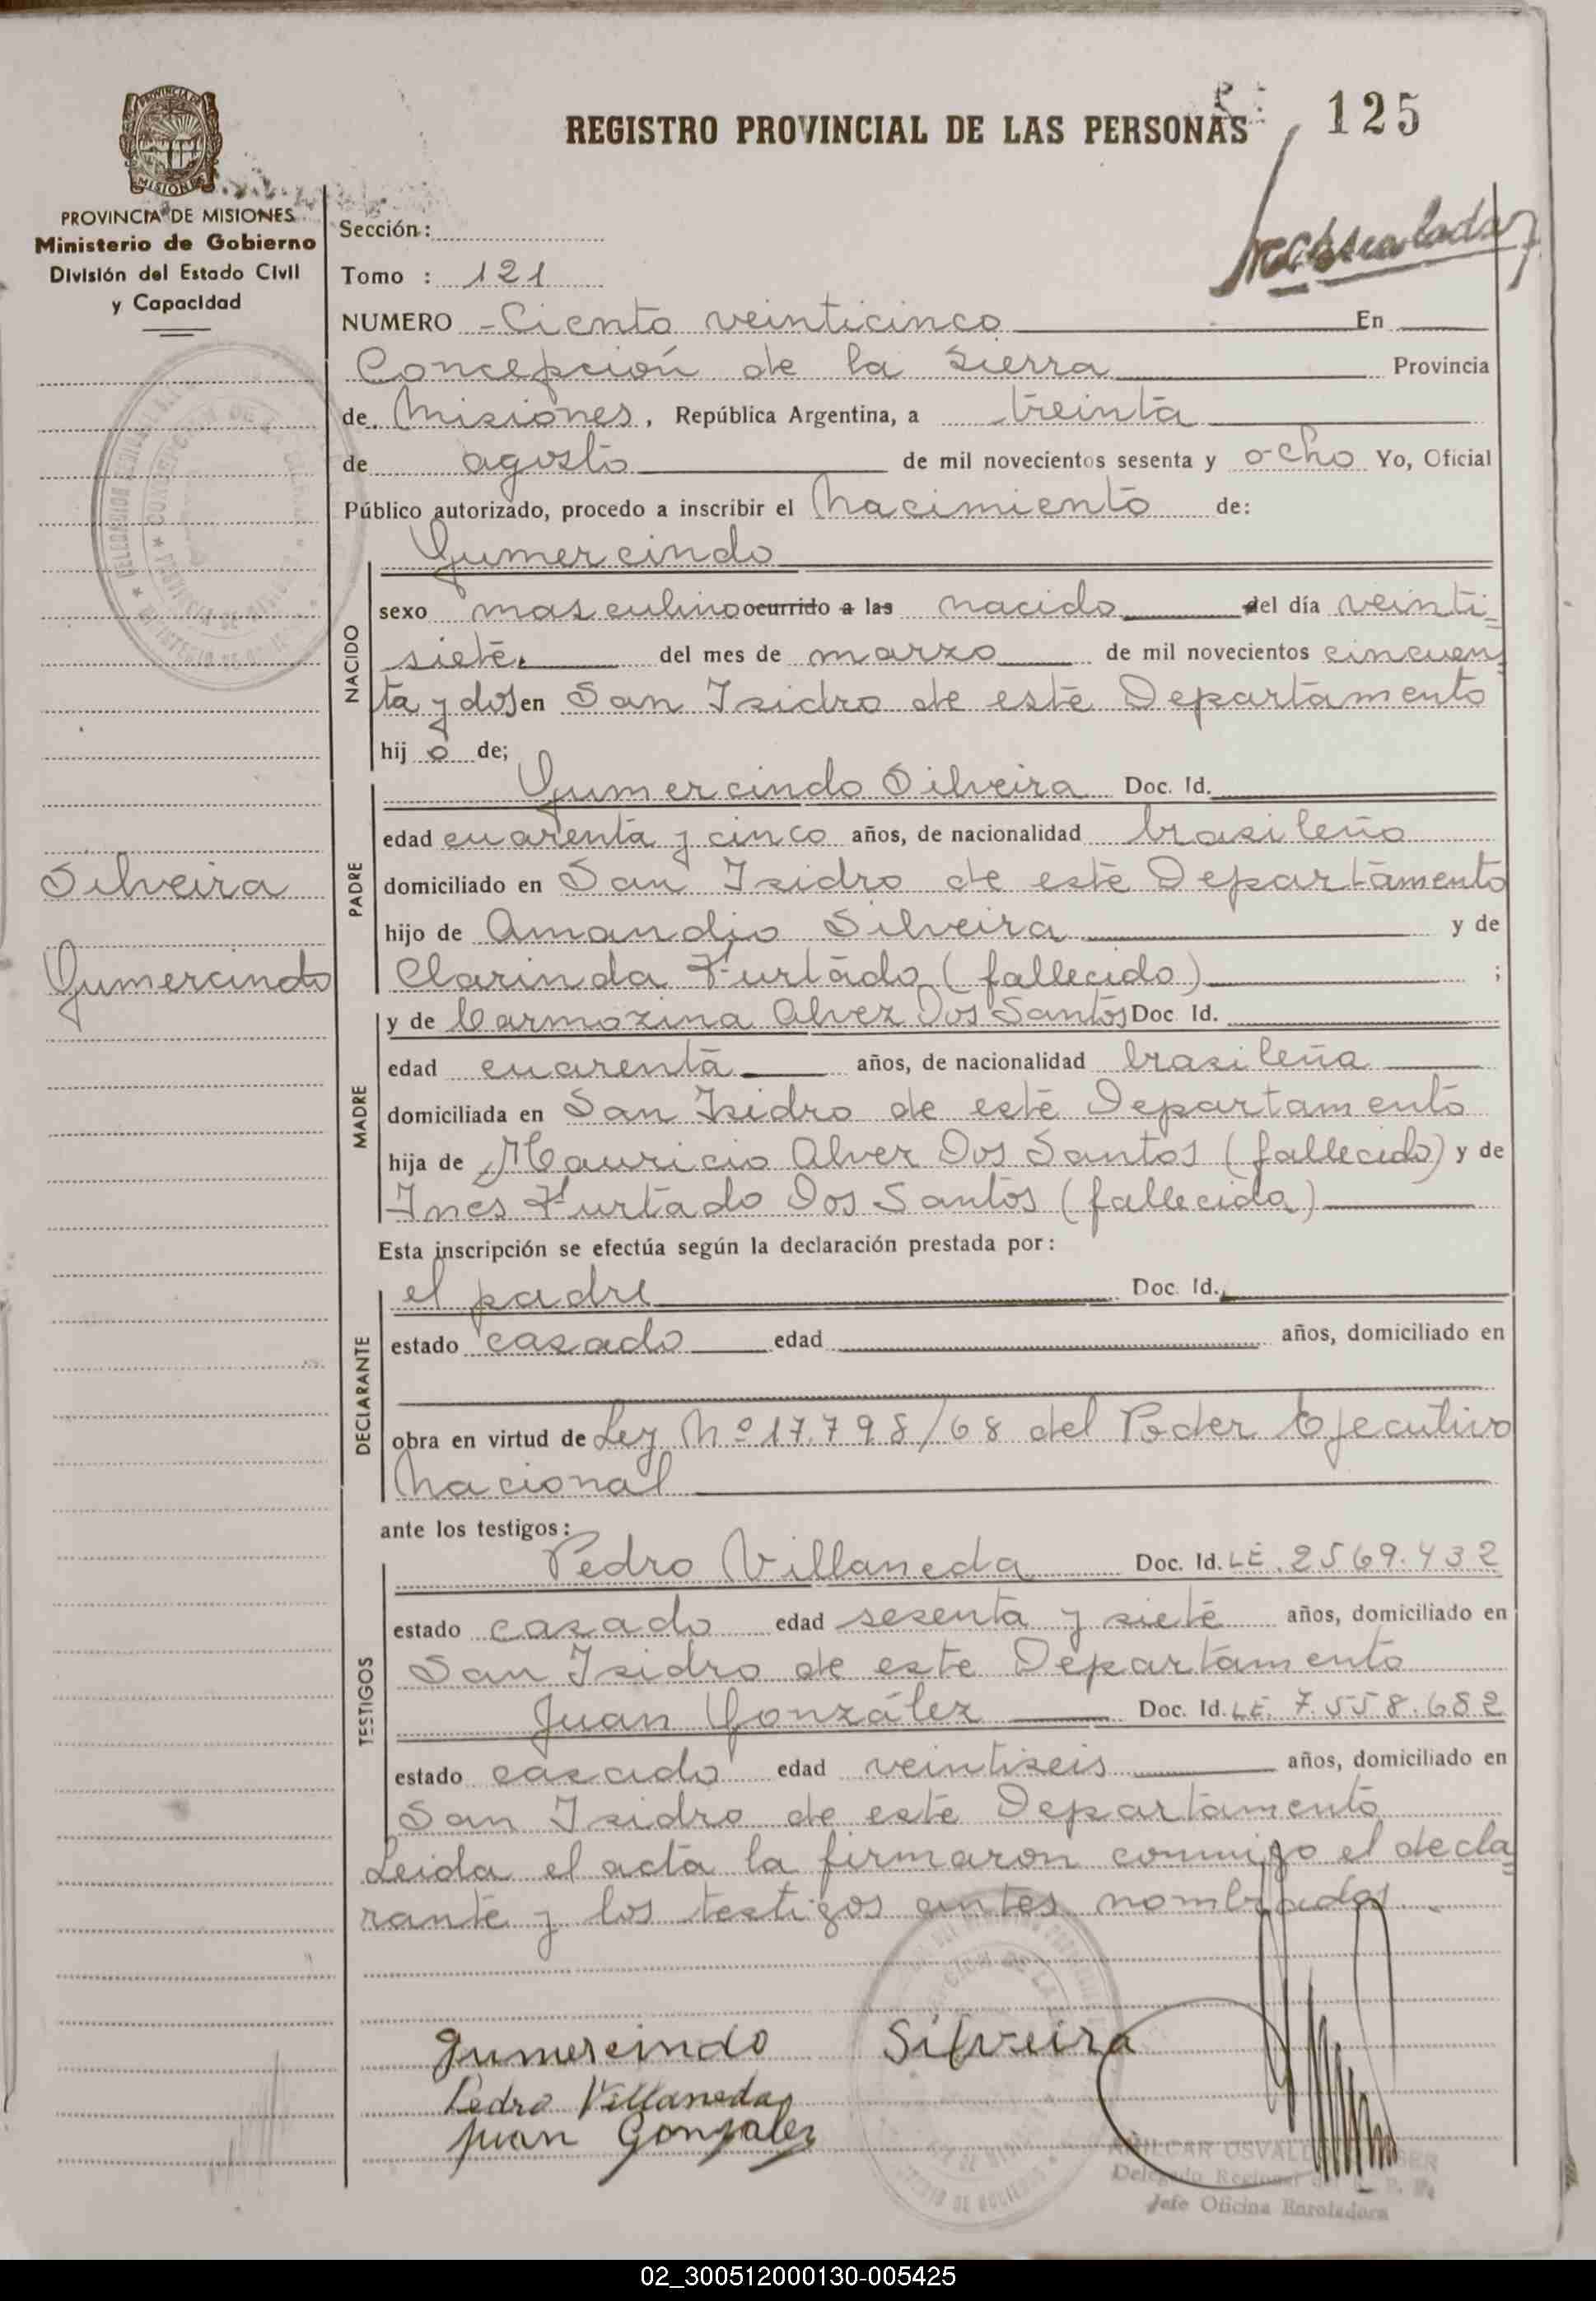 REGISTRO PROVINCIAL DE LAS PERSONAS
125
PROVINCIA DE MISIONES
Ministerio de Gobierno
División del Estado Civil
y Capacidad
Sección:
Tomo : 121
NUMERO - Ciento veinticinco En
Concepción de la Sierra Provincia
de Misiones, República Argentina, a treinta
de agosto de mil novecientos sesenta y ocho Yo, Oficial
Público autorizado, procedo a inscribir el Nacimiento de:
Gumercindo
NACIDO
sexo masculino ocurrido a las nacido del día veinti=
siete. del mes de marzo de mil novecientos cincuen
ta y dos en San Isidro de este Departamento
hij o de;
PADRE
Gumercindo Silveira Doc. Id.
edad cuarenta y cinco años, de nacionalidad brasileño
domiciliado en San Isidro de este Departamento
hijo de Amandio Silveira y de
Clarinda Furtado (fallecido) ;
Silveira
Gumercindo
MADRE
y de Carmozina Alvez Dos Santos Doc. Id.
edad cuarenta años, de nacionalidad brasileña
domiciliada en San Isidro de este Departamento
hija de Mauricio Alver Dos Santos (fallecido) y de
Ines Furtado Dos Santos (fallecida)
Esta inscripción se efectúa según la declaración prestada por:
DECLARANTE
el padre Doc. Id.
estado casado edad años, domiciliado en
obra en virtud de Ley Nº 17.798/68 del Poder Ejecutivo
Nacional
ante los testigos:
TESTIGOS
Pedro Villaneda Doc. Id. LE. 2569.432
estado casado edad sesenta y siete años, domiciliado en
San Isidro de este Departamento
Juan González Doc. Id. LE. 7.558.682
estado casado edad veintiseis años, domiciliado en
San Isidro de este Departamento
Leida el acta la firmaron conmigo el decla=
rante y los testigos antes nombrados
Gumercindo Silveira
Pedro Villaneda
Juan Gonzalez
Jefe Oficina Enroladora
02_300512000130-005425